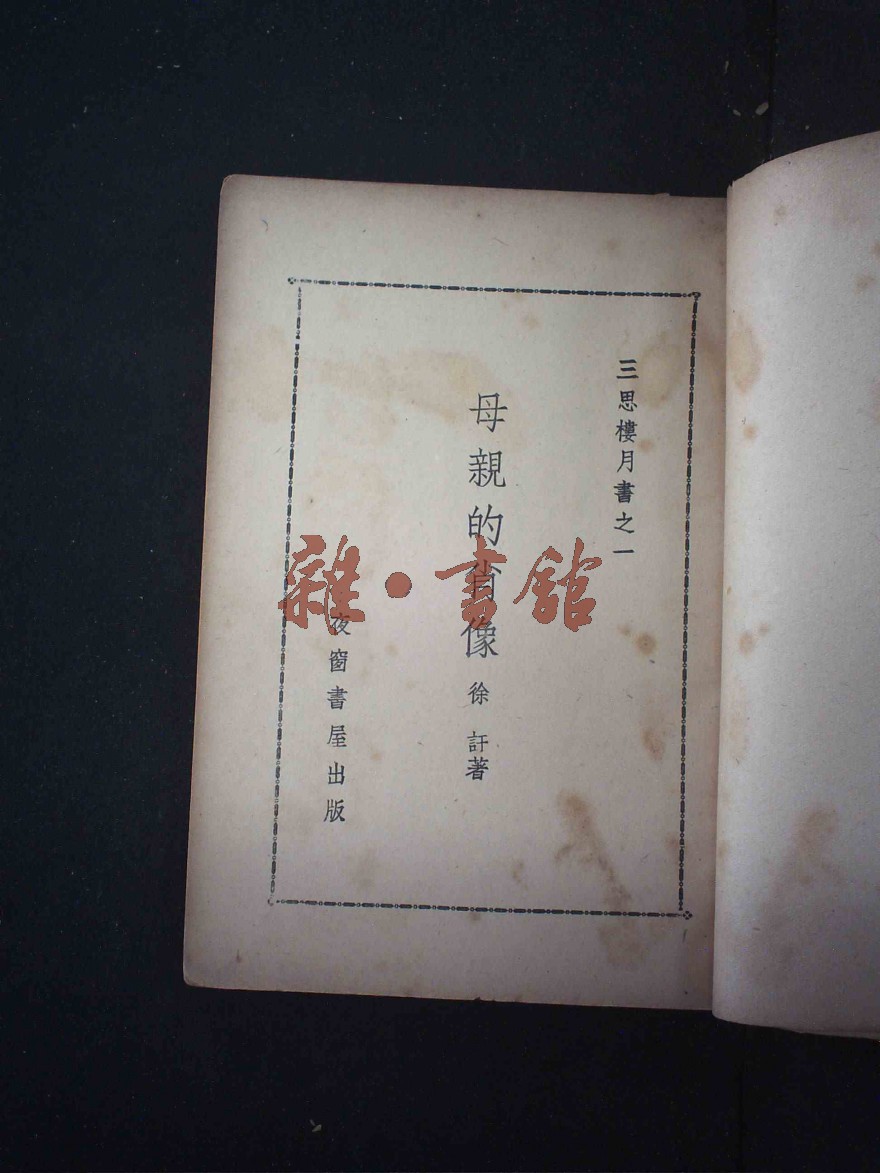 三思樓月書之一
母親的肖像
徐訏著
夜窗書屋出版
雜·書舘